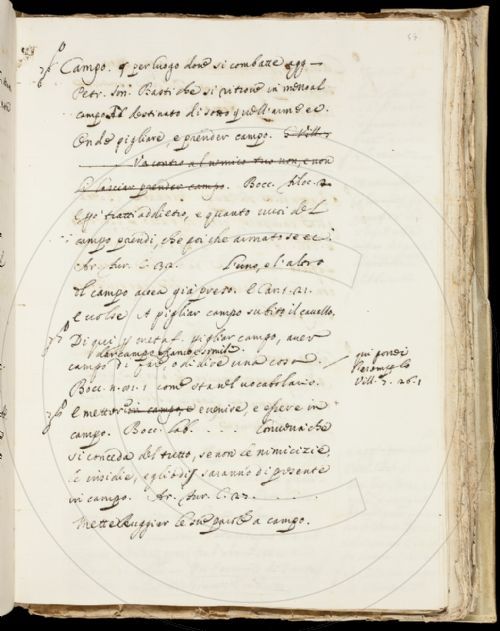 57
Campo. p per luogo doue si combatte agg —
Petr. son. Basti che si ritroue in mezzo al
campo Al destinato di sotto quell' arme ec.
Onde pigliare, e prender campo. G. Vill.
Va contro al nemico tuo non, e non
lasciar prender campo. Bocc. Filoc. 2
e poi tratti addietro, e quanto vuoi del
campo prendi, che poi che armato se ec.
Ar. Fur. C. L'uno, e l'altro
Il campo auea già preso. E Can. 1.
e volse A pigliar campo subito il cauallo.
Di qui p metaf. pigliar campo, auer
dar campo
campo di fare, o di dire una cosa.
Bocc. n. 41. 1 come sta nel vocabolario.
qui pondi
Vill. 7. 26. 1
e metter in campo, e e uenire, e essere in
campo. Bocc. lab. . . . . conuenia che
si conceda del tutto, se non le nimicizie,
le insidie, e gli odij saranno di presente
in campo. Ar. Fur. C. . . . .
Mette Ruggier le sue a campo.